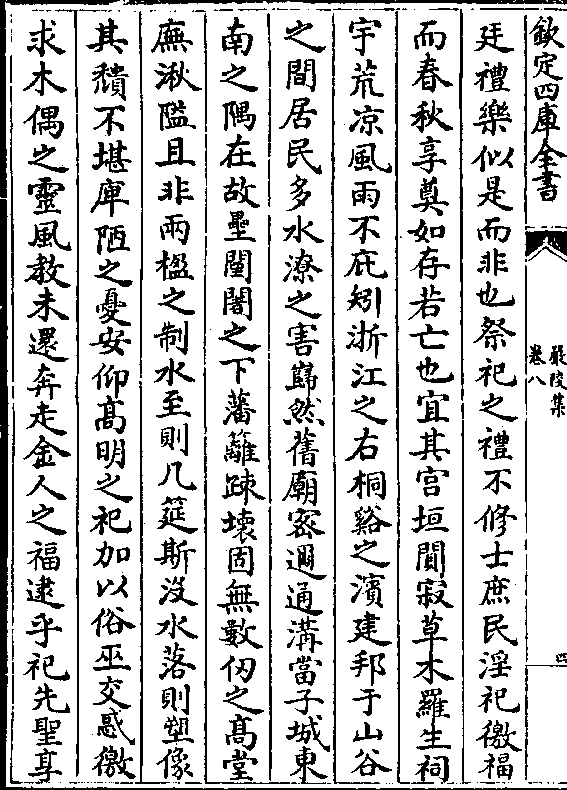 欽定四庫全書
嚴陵集
卷八
四
廷禮樂似是而非也祭祀之禮不修士庶民淫祀徼福
而春秋享奠如存若亡也宜其宮垣闃寂草木羅生祠
宇荒凉風雨不庇矧浙江之右桐谿之濱建邦于山谷
之間居民多水潦之害巋然舊廟密邇通溝當子城東
南之隅在故壘闉闍之下藩籬踈壊固無數仭之髙堂
廡湫隘且非兩楹之制水至則几筵斯沒水落則塑像
其穨不堪庳陋之憂安仰髙明之祀加以俗巫交惑徼
求木偶之靈風教未還奔走金人之福逮乎祀先聖享